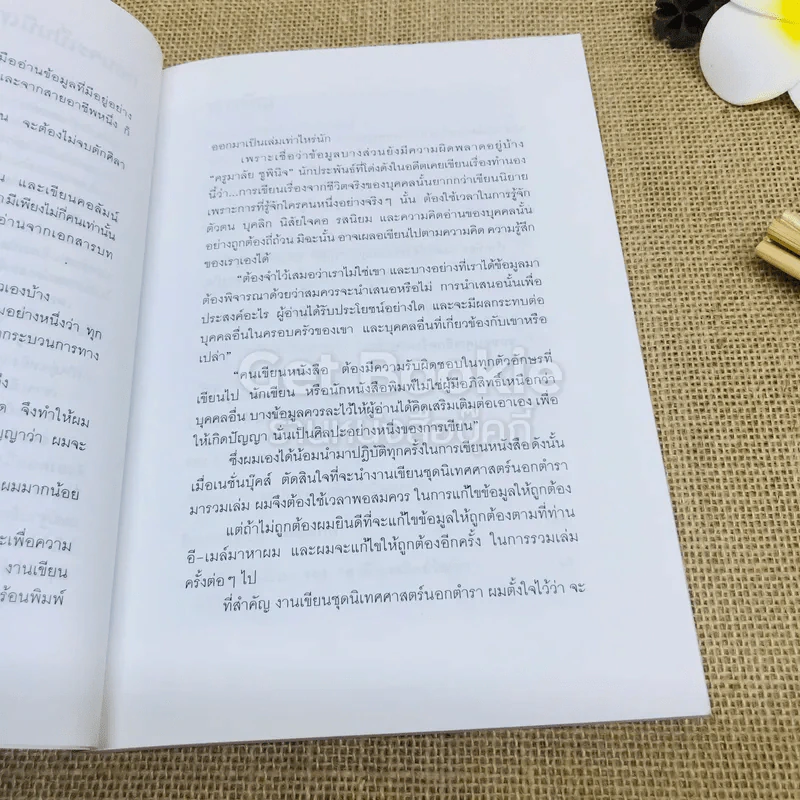 มืออ่านข้อมูลที่มีอยู่อย่าง
และจากสายอาชีพหนึ่ง ก็
น จะต้องไม่จบตักศิลา
น และเขียนคอลัมน์
ามีเพียงไม่กี่คนเท่านั้น
อ่านจากเอกสารบท
ัวเองบ้าง
มอย่างหนึ่งว่า ทุก
กระบวนการทาง
ถึง
ด จึงทำให้ผม
ญญาว่า ผมจะ
ผมมากน้อย
ะเพื่อความ
งานเขียน
ร้อนพิมพ์
ออกมาเป็นเล่มเท่าไหร่นัก
เพราะเชื่อว่าข้อมูลบางส่วนยังมีความผิดพลาดอยู่บ้าง
“ครูมาลัย ชูพินิจ” นักประพันธ์ที่โด่งดังในอดีตเคยเขียนเรื่องทำนอง
นี้ว่า...การเขียนเรื่องจากชีวิตจริงของบุคคลนั้นยากกว่าเขียนนิยาย
เพราะการที่รู้จักใครคนหนึ่งอย่างจริงๆ นั้น ต้องใช้เวลาในการรู้จัก
ตัวตน บุคลิก นิสัยใจคอ รสนิยม และความคิดอ่านของบุคคลนั้น
อย่างถูกต้องถี่ถ้วน มิฉะนั้น อาจเผลอเขียนไปตามความคิด ความรู้สึก
ของเราเองได้
“ต้องจำไว้เสมอว่าเราไม่ใช่เขา และบางอย่างที่เราได้ข้อมูลมา
ต้องพิจารณาด้วยว่าสมควรจะนำเสนอหรือไม่ การนำเสนอนั้นเพื่อ
ประสงค์อะไร ผู้อ่านได้รับประโยชน์อย่างใด และจะมีผลกระทบต่อ
บุคคลอื่นในครอบครัวของเขา และบุคคลอื่นที่เกี่ยวข้องกับเขาหรือ
เปล่า”
“คนเขียนหนังสือ ต้องมีความรับผิดชอบในทุกตัวอักษรที่
เขียนไป นักเขียน หรือนักหนังสือพิมพ์ไม่ใช่ผู้มีอภิสิทธิ์เหนือกว่า
บุคคลอื่น บางข้อมูลควรละไว้ให้ผู้อ่านได้คิดเสริมเติมต่อเอาเอง เพื่อ
ให้เกิดปัญญา นั่นเป็นศิลปะอย่างหนึ่งของการเขียน”
ซึ่งผมเองได้น้อมนำมาปฏิบัติทุกครั้งในการเขียนหนังสือ ดังนั้น
เมื่อเนชั่นบุ๊คส์ ตัดสินใจที่จะนำงานเขียนชุดนิเทศศาสตร์นอกตำรา
มารวมเล่ม ผมจึงต้องใช้เวลาพอสมควร ในการแก้ไขข้อมูลให้ถูกต้อง
แต่ถ้าไม่ถูกต้องผมยินดีที่จะแก้ไขข้อมูลให้ถูกต้องตามที่ท่าน
อี-เมล์มาหาผม และผมจะแก้ไขให้ถูกต้องอีกครั้ง ในการรวมเล่ม
ครั้งต่อๆ ไป
ที่สำคัญ งานเขียนชุดนิเทศศาสตร์นอกตำรา ผมตั้งใจไว้ว่า จะ
Get Bookie